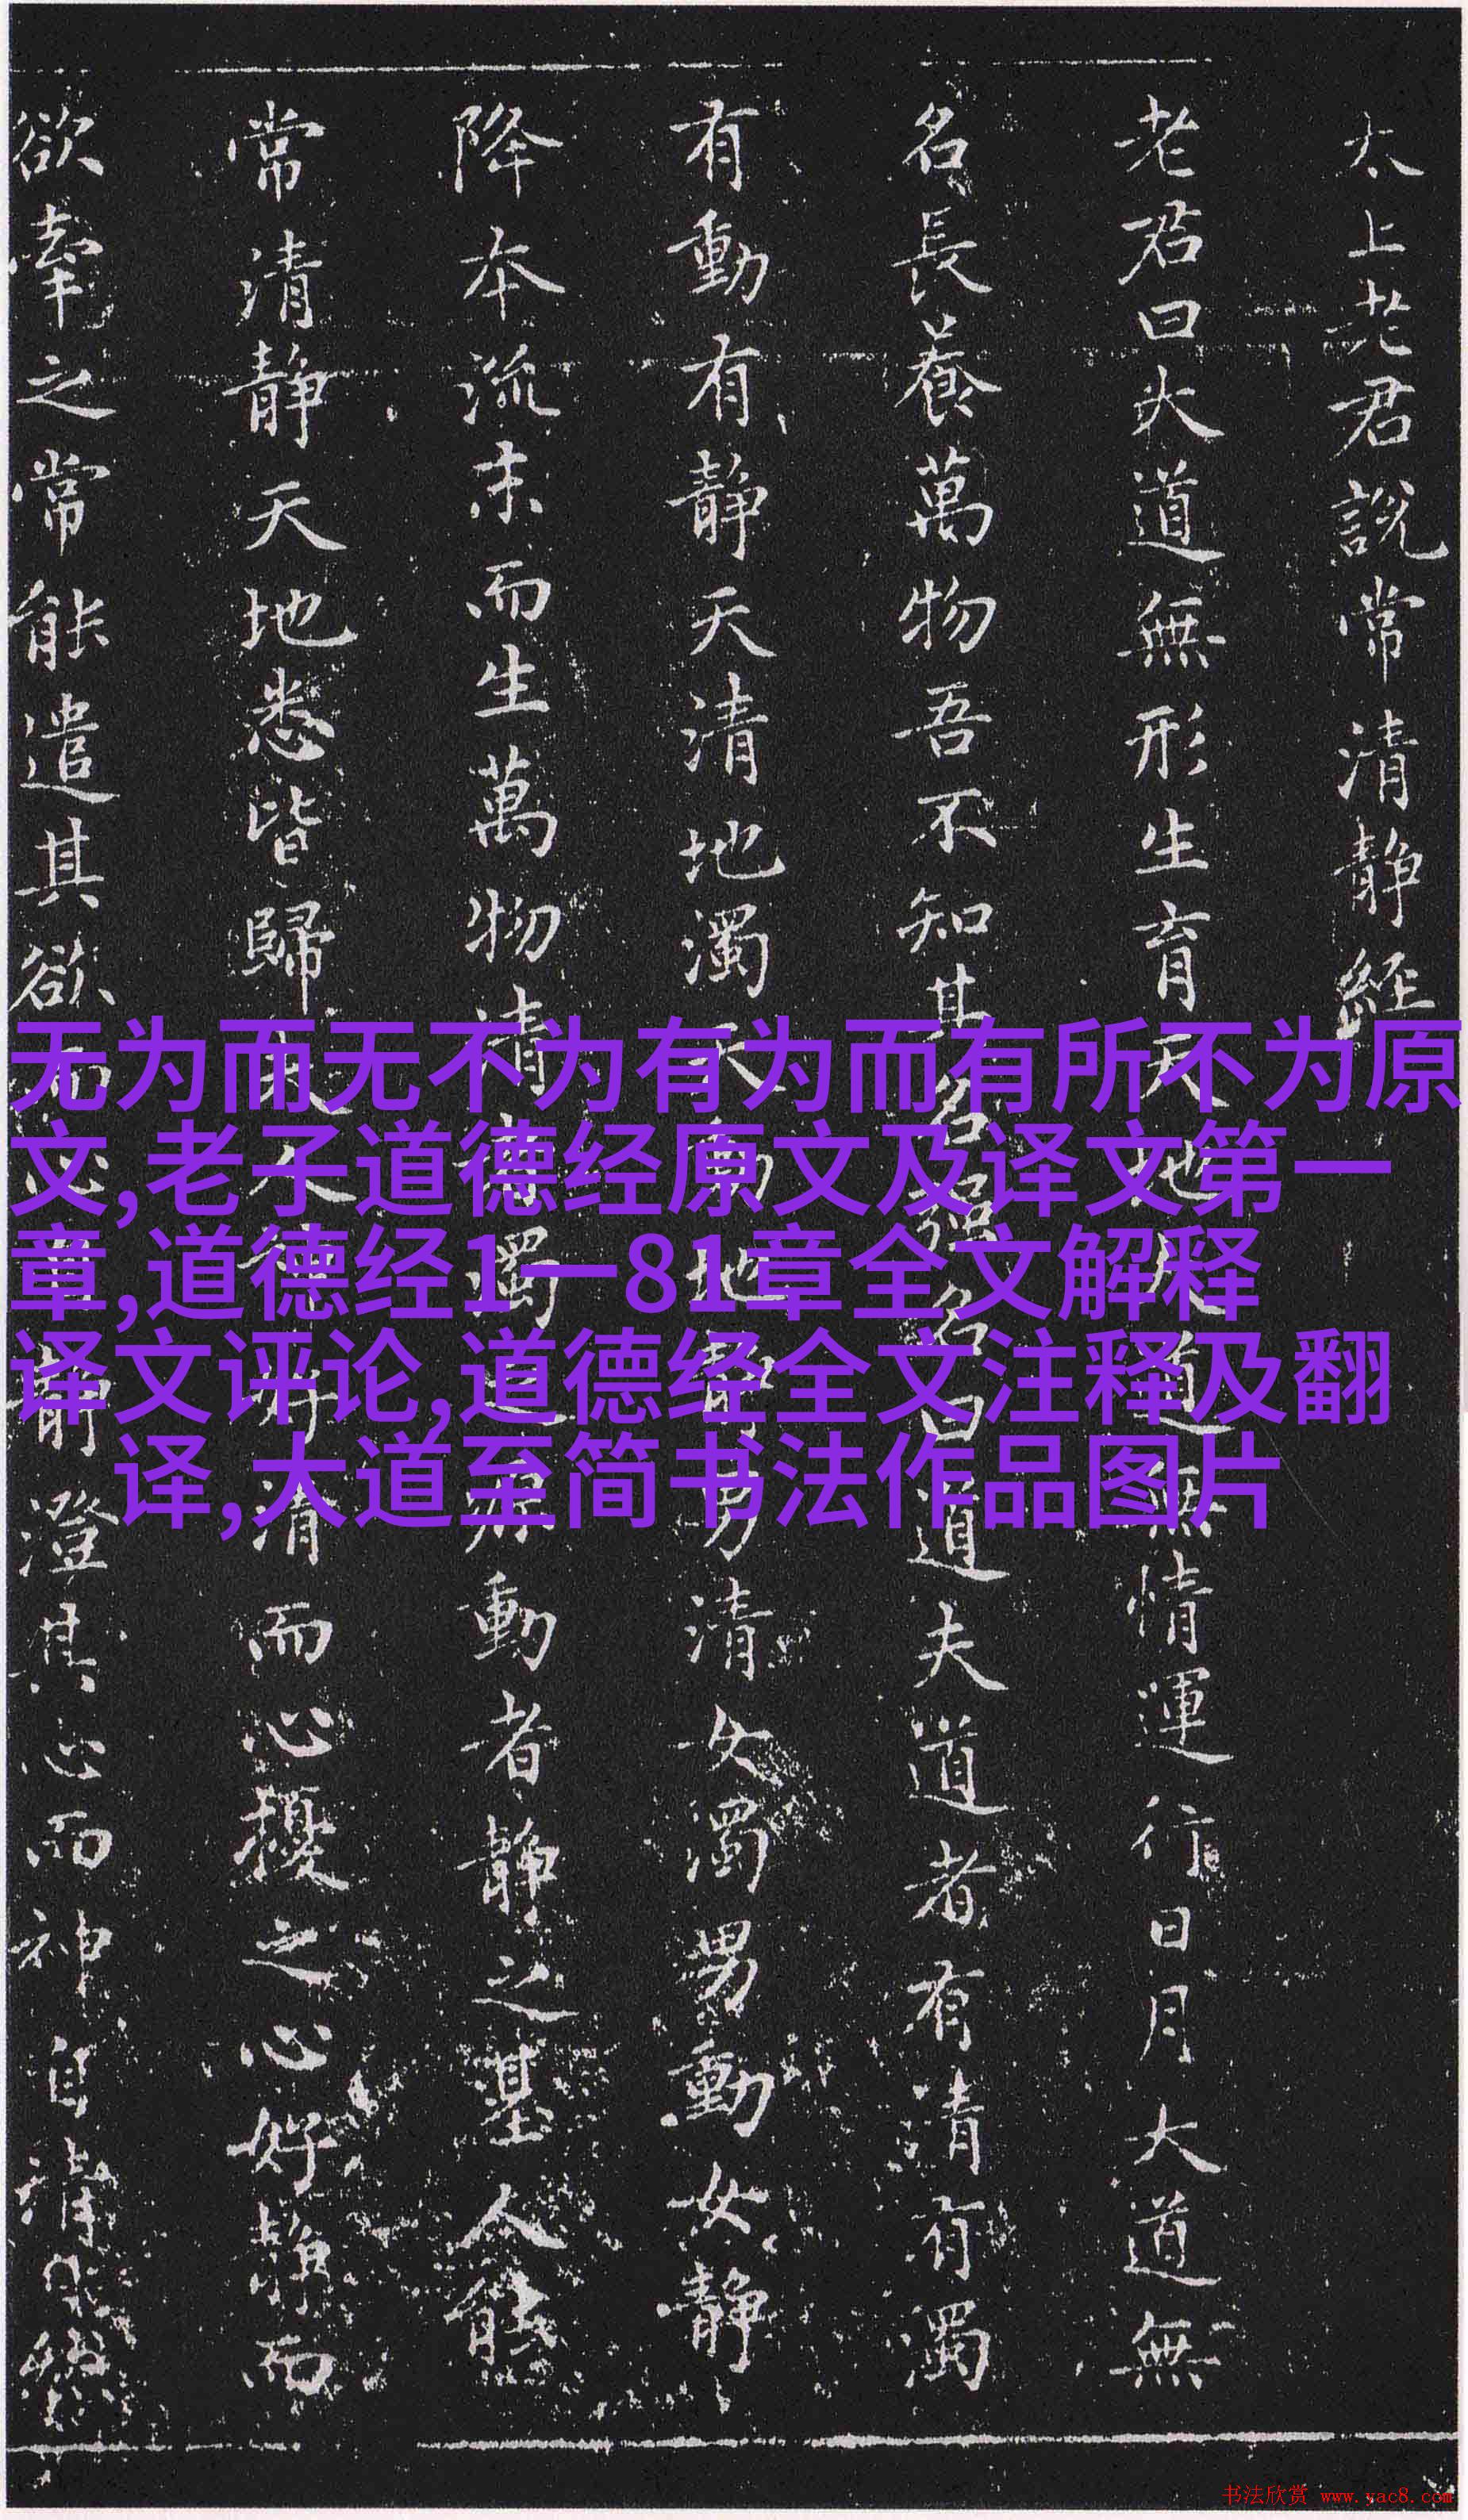 太上老君說常清静經
老君曰大道無形生育天地大道無情運行日月大道無
名長養萬物吾不知其名强名曰道夫道者有清有濁
有動有静天清地濁天動地静男清女濁男動女静
降本流末而生萬物清者濁之源動者静之基人能
常清静天地悉皆歸夫人神好清而心擾之心好静而
欲牽之常能遣其欲而心自静澄其心而神自清
无为而无不为有为而有所不为原
文,老子道德经原文及译文第一
章,道德经1一81章全文解释
译文评论,道德经全文注释及翻
译,大道至简书法作品图片
书法欣赏 www.yac8.com